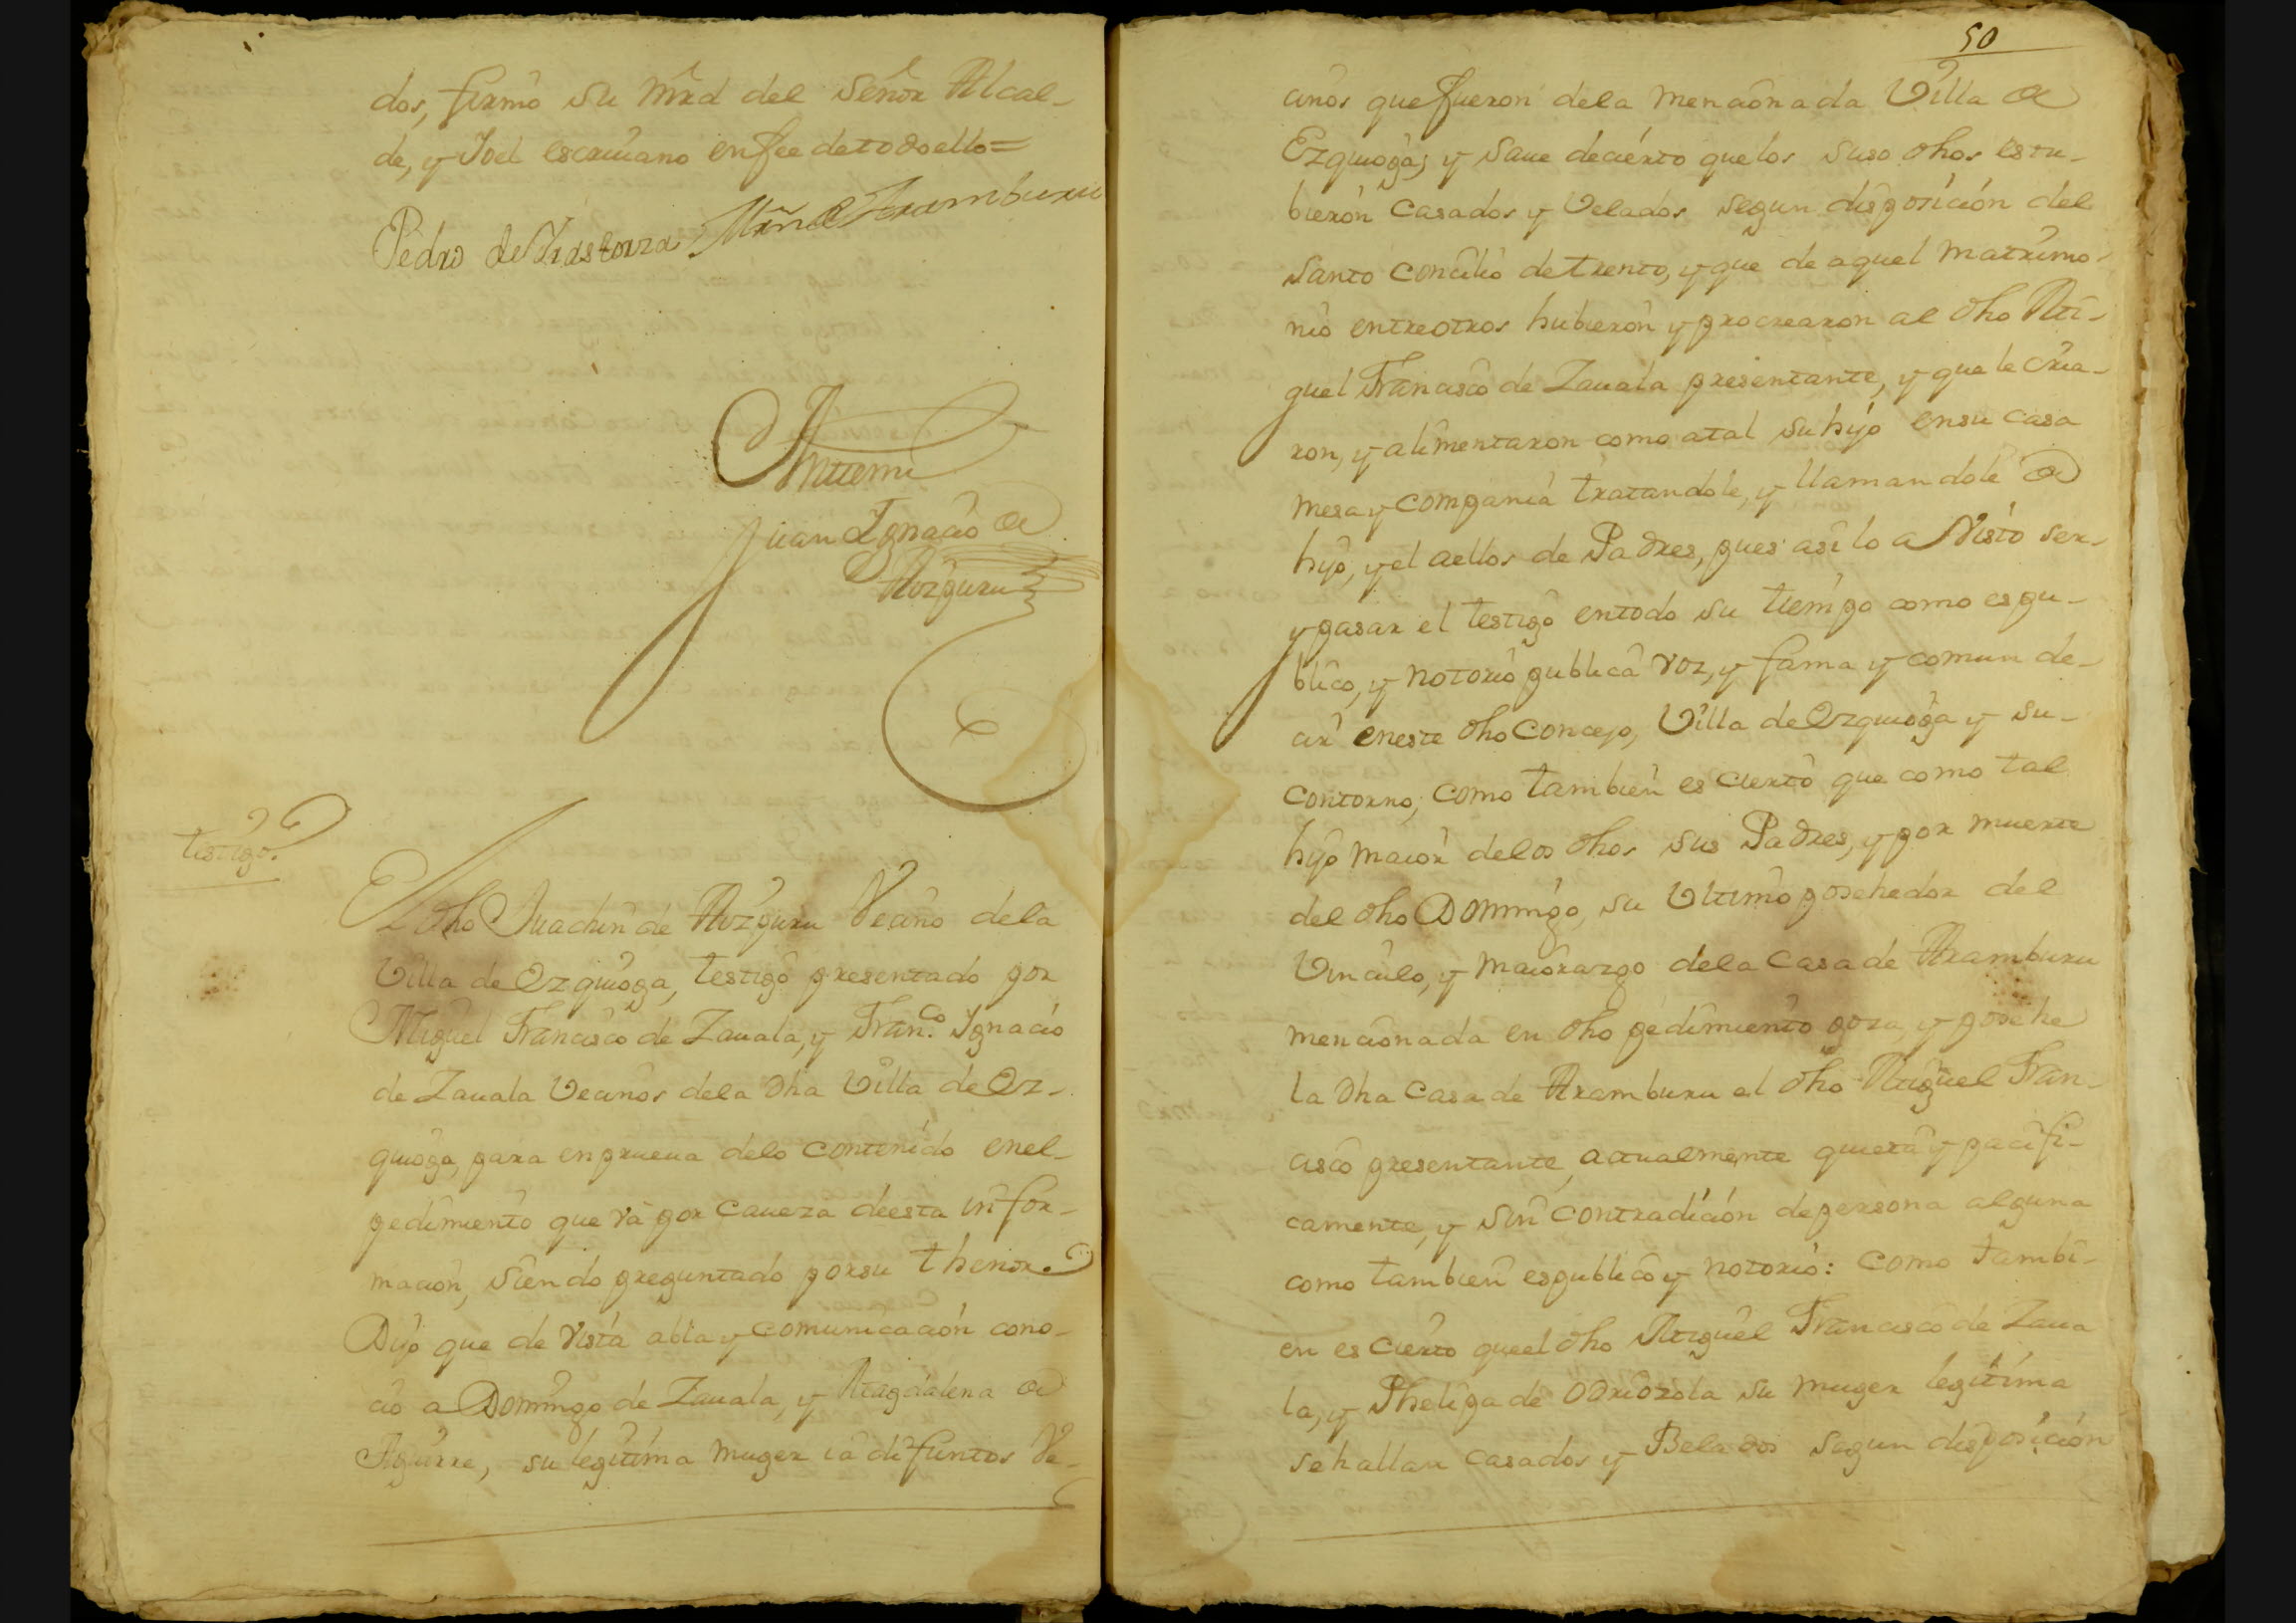 dos, firmó su mrd del señor Alcal-
de, y Yo el escriuano en fee de todo ello=
Pedro de Irastorza Mrn de Aramburu
Ante mi
Juan Ygnacio de
Aozpuru
2º
testigo.
El dho Juachin de Aozpuru Vecino dela
Villa de Ezquioga, testigo presentado por
Miguel Francisco de Zauala, y Franco. Ygnacio
de Zauala Vecinos dela dha Villa de Ez-
quioga, para en prueua delo contenido enel-
pedimiento que và por caueza deesta infor-
macion, siendo preguntado porsu thenor.
Dijo que de vista abla y comunicación cono-
cio a Domingo de Zauala, y Magdalena de
Aguirre, su legitima muger ia difuntos Ve-
50
cinos que fueron dela mencionada Villa de
Ezquioga, y saue decierto quelos suso dhos estu-
bieron casados y Velados segun disposición del
santo concilio de trento, y que de aquel matrimo-
nio entreotros hubieron y procrearon al dho Mi-
guel Francisco de Zauala presentante, y que le cria-
ron, y alimentaron como atal su hijo ensu casa
mesa y compania tratandole, y llamandole de
hijo, y el aellos de Padres, pues asi lo a Visto ser-
y pasar el testigo entodo su tiempo como es pu-
blico, y notorio publica voz, y fama y comun de-
cir eneste dho Concejo, Villa de Ezquioga y su-
contorno; como tambien es cierto que como tal
hijo maior delos dhos sus Padres, y por muerte
del dho Domingo, su Ultimo posehedor del
Vinculo, y maiorazgo dela casa de Aramburu
mencionada en dho pedimiento goza, y posehe
la dha casa de Aramburu el dho Miguel Fran-
cisco presentante, actualmente quieta y pacifi-
camente, y sin contradición depersona alguna
como tambien espublico y notorio: como tambi-
en es cierto queel dho Miguel Francisco de Zaua
la, y Phelipa de Odriozola su muger legitima
sehallan casados y Belados segun disposición